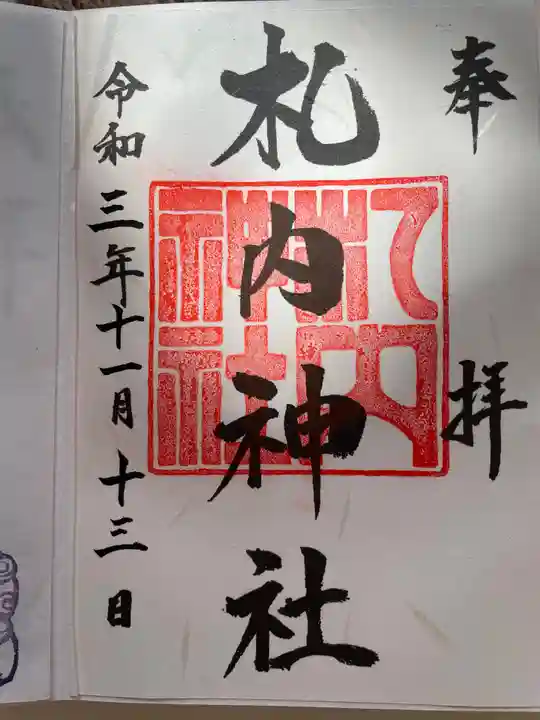 奉拝
札内神社
札内神社
令和三年十一月十三日